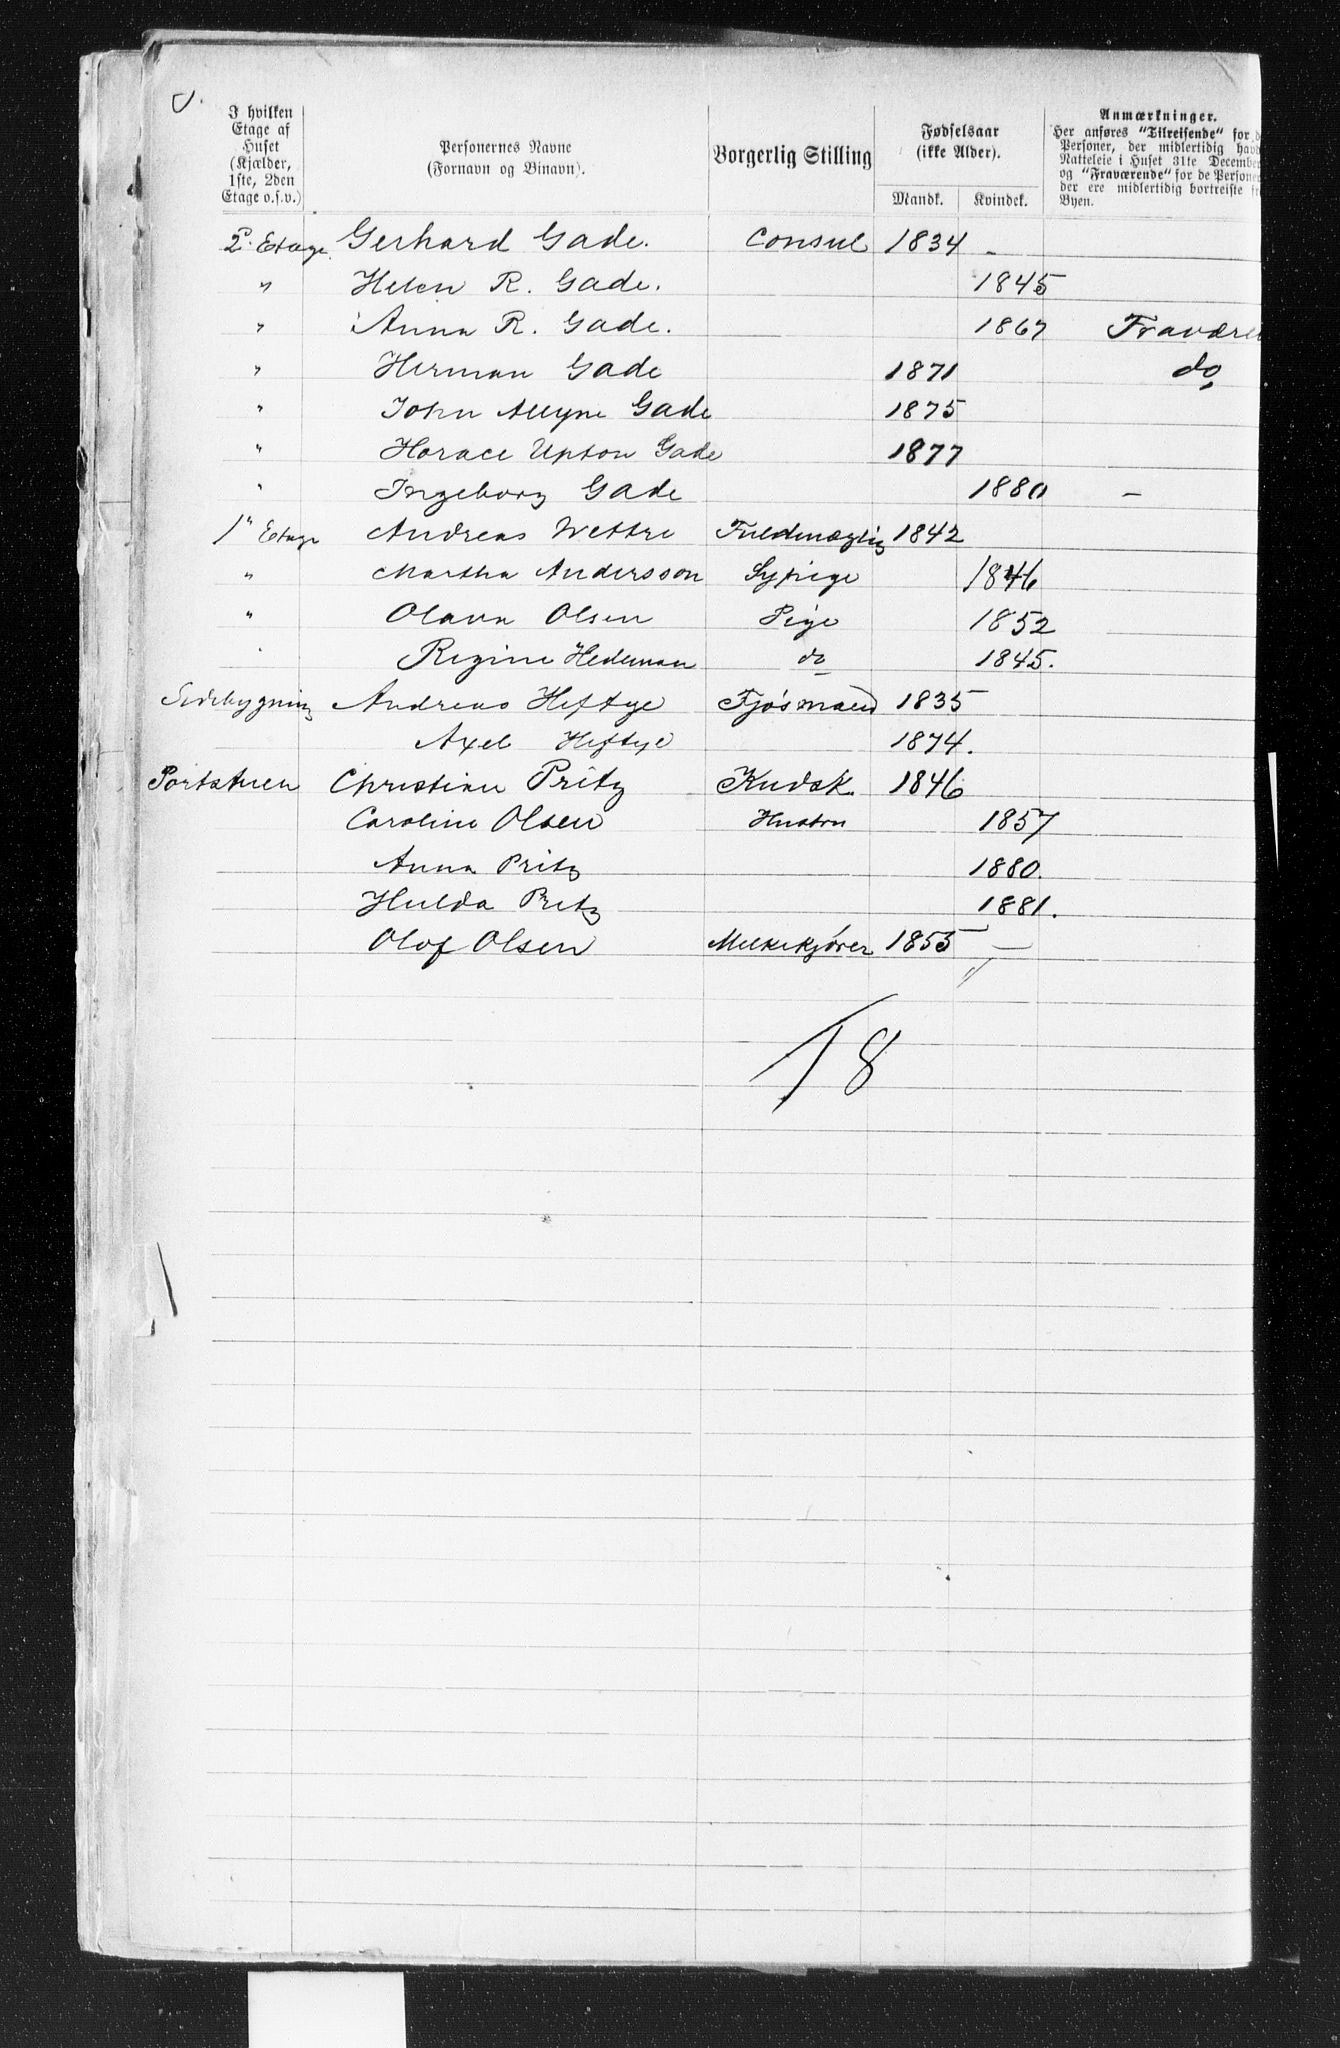 I hvilken Etage af Huset (Kjælder, 1ste, 2den Etage o.s.v.) | Personernes Navne (Fornavn og Binavn). | Borgerlig Stilling | Fødselsaar (ikke Alder). Mandk. Kvindek. | Anmærkninger. Her anføres "Tilreisende" for de Personer, der midlertidig havde Natteleie i Huset 31te December og "Fraværende" for de Personer der ere midlertidig bortreiste fra Byen.
2. Etage. Gerhard Gade. Consul 1834 -
" Helen R. Gade. 1845
" Anna R. Gade. 1867 Fravære
" Herman Gade 1871 do
" John Alleyne Gade 1875
" Horace Upton Gade 1877
" Ingeborg Gade 1880 -
1" Etage Andreas Wettre Fuldmægtig 1842
" Martha Andersson Sypige 1846
" Olava Olsen Pige 1852
" Regine Hedeman do 1845.
Sidebygning Andreas Heftye Fjøsmand 1835
Axel Heftye 1874.
Portstuen Christian Pritz Kudsk. 1846
Caroline Olsen Hustru 1857
Anna Pritz 1880.
Hulda Pritz 1881.
Olof Olsen Melkekjører 1855 -
18